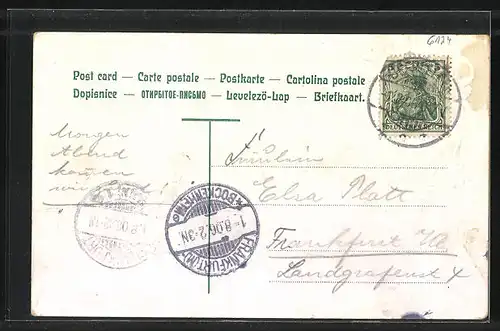 6124
Post card — Carte postale — Postkarte — Cartolina postale
Dopisnice — ОТКРЫТОЕ-ПИСЬМО — Levelezö-Lap — Briefkaart.
DEUTSCHES REICH
Morgen
Abend
kommen
wir
Fräulein
Elsa Platt
Frankfurt
Landgrafenst
FRANKFURT(M.)
BOCKENHEIM
1.8.06.2-3N.